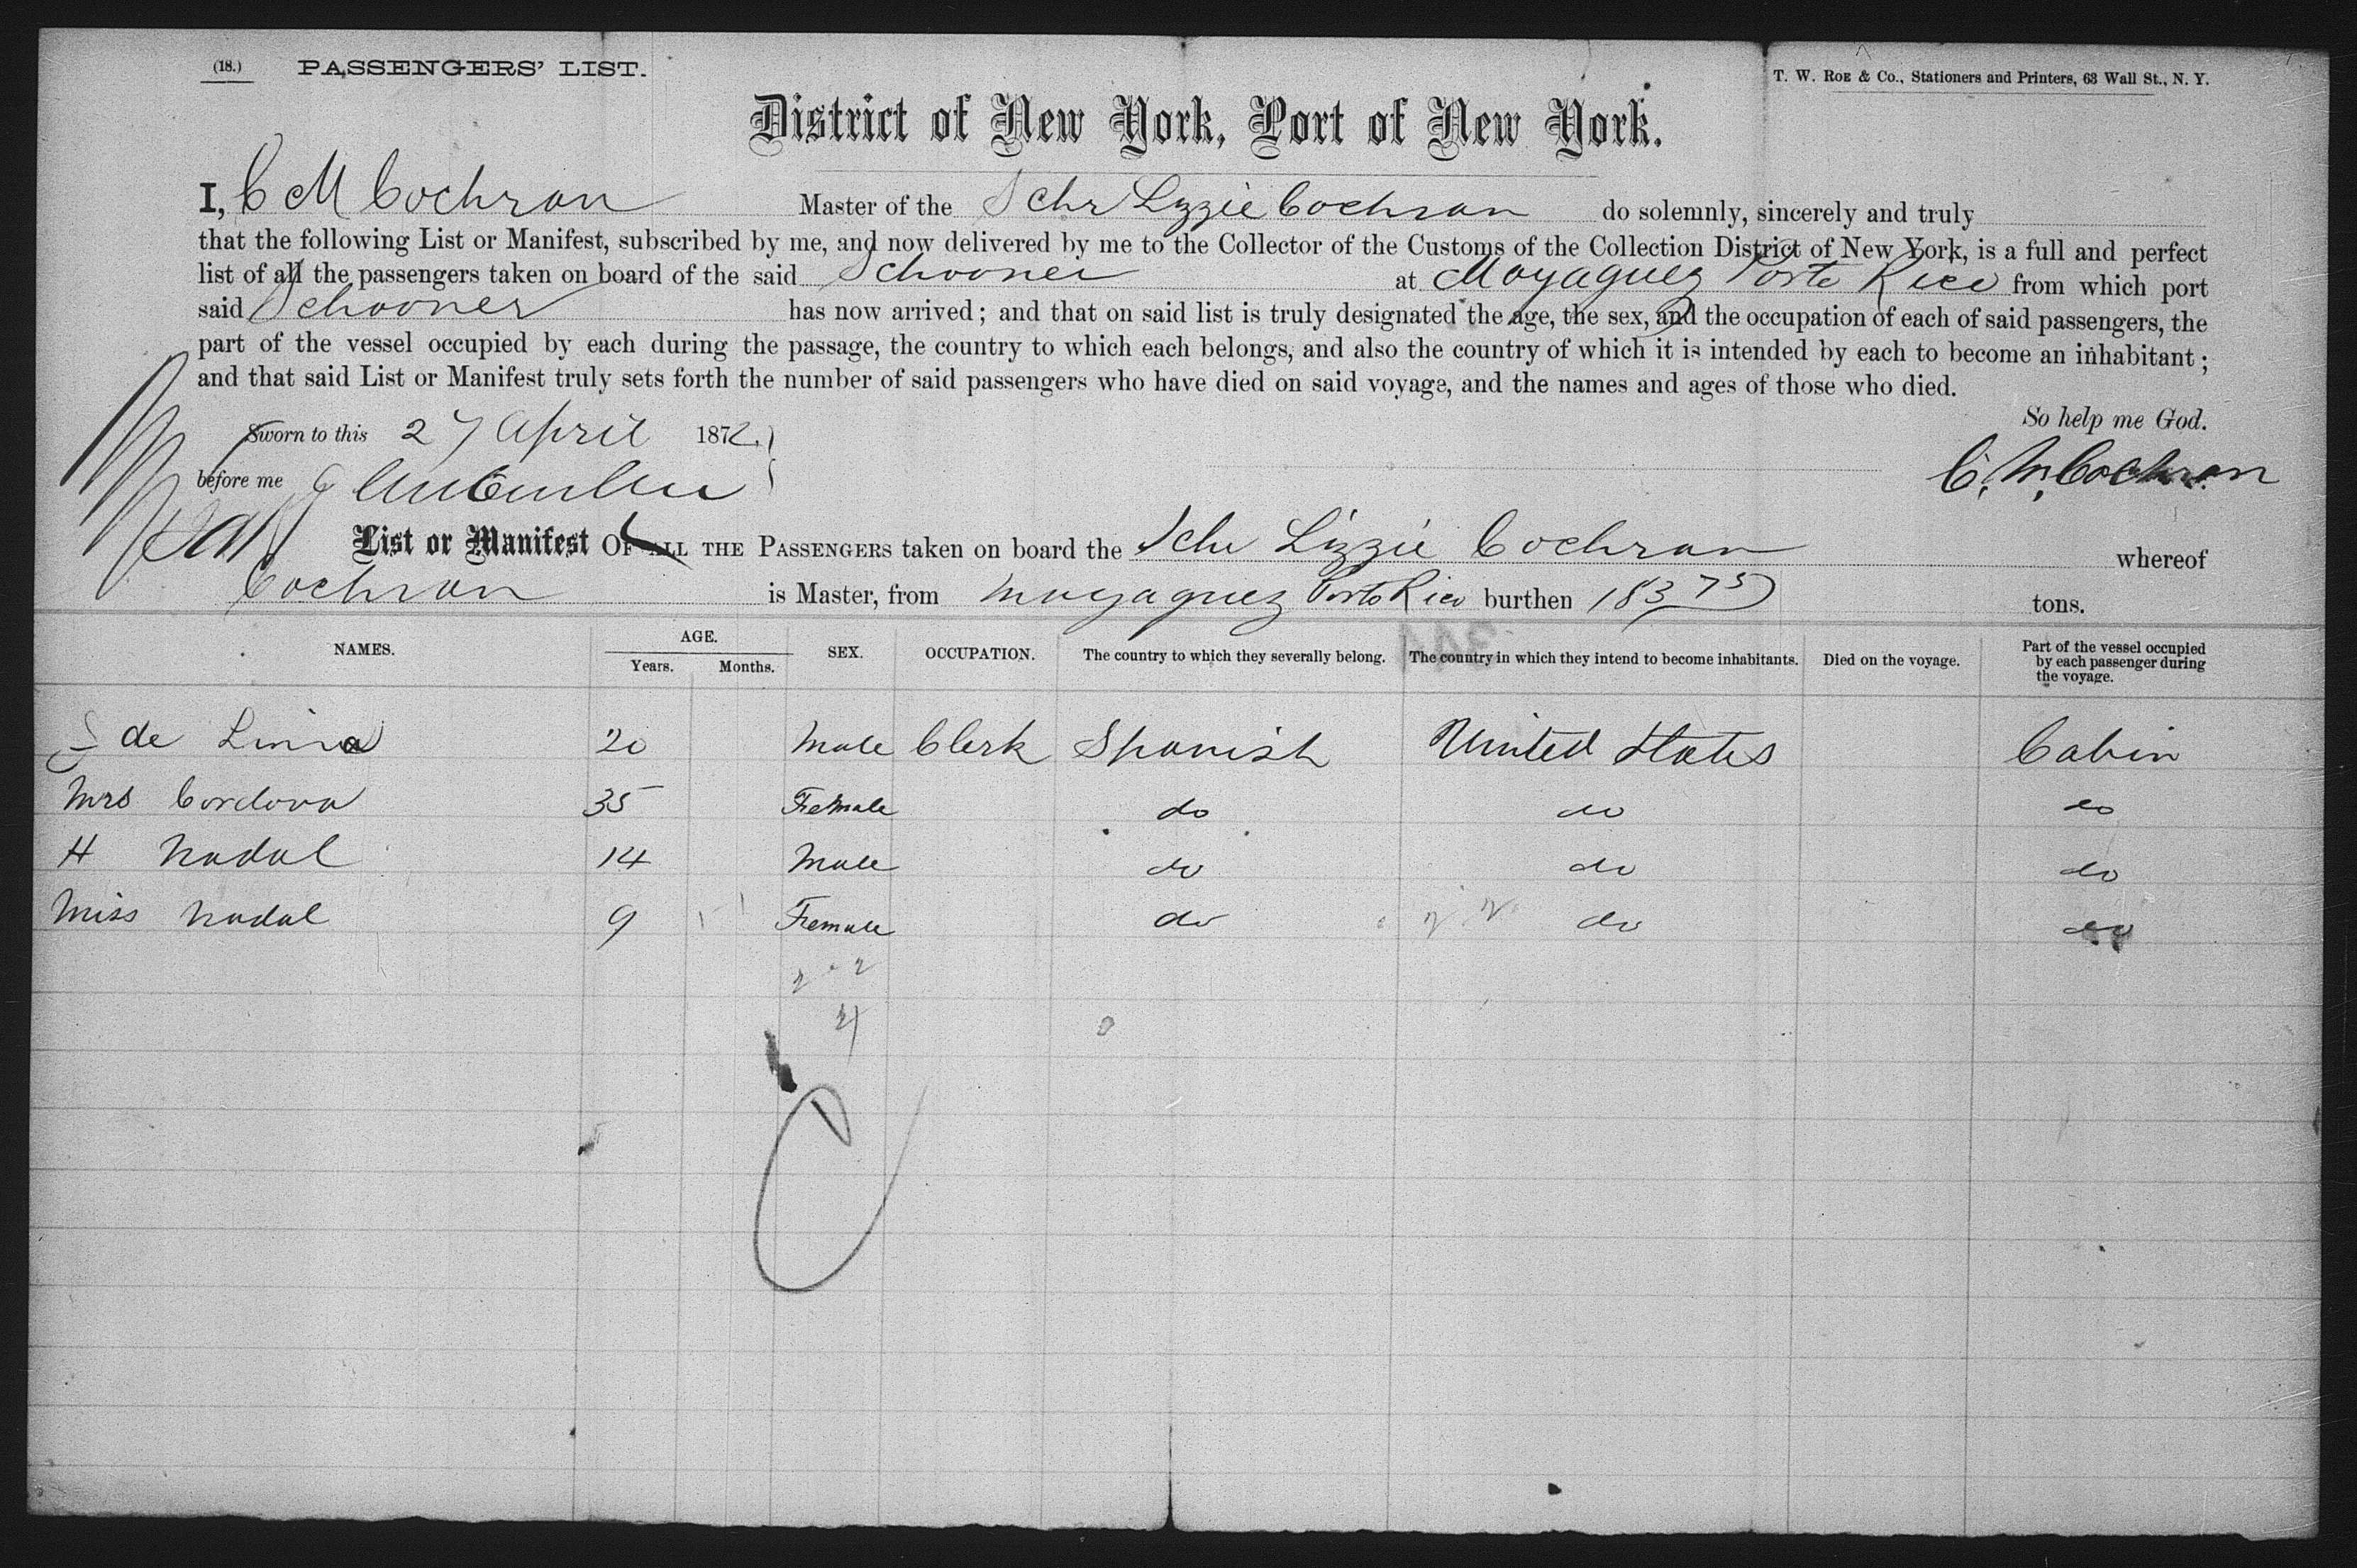 (18.) PASSENGERS' LIST.
T. W. Roe & Co., Stationers and Printers, 63 Wall St., N. Y.
District of New York, Port of New York.
I, C M Cochran Master of the Schr Lizzie Cochran do solemnly, sincerely and truly
that the following List or Manifest, subscribed by me, and now delivered by me to the Collector of the Customs of the Collection District of New York, is a full and perfect
list of all the passengers taken on board of the said Schooner at Mayaguez Porto Rico from which port
said Schooner has now arrived; and that on said list is truly designated the age, the sex, and the occupation of each of said passengers, the
part of the vessel occupied by each during the passage, the country to which each belongs, and also the country of which it is intended by each to become an inhabitant;
and that said List or Manifest truly sets forth the number of said passengers who have died on said voyage, and the names and ages of those who died.
So help me God.
Sworn to this 27 April 1872.
C. M. Cochran
before me
List or Manifest OF ALL THE PASSENGERS taken on board the Schr Lizzie Cochran whereof
Cochran is Master, from Mayaguez Porto Rico burthen 183 75 tons.
NAMES. AGE. Years. Months. SEX. OCCUPATION. The country to which they severally belong. The country in which they intend to become inhabitants. Died on the voyage. Part of the vessel occupied by each passenger during the voyage.
de Lima 20 Male Clerk Spanish United States Cabin
Mrs Cordova 35 Female do do do
H Nadal 14 Male do do do
Miss Nadal 9 Female do do do
2 2
4 0